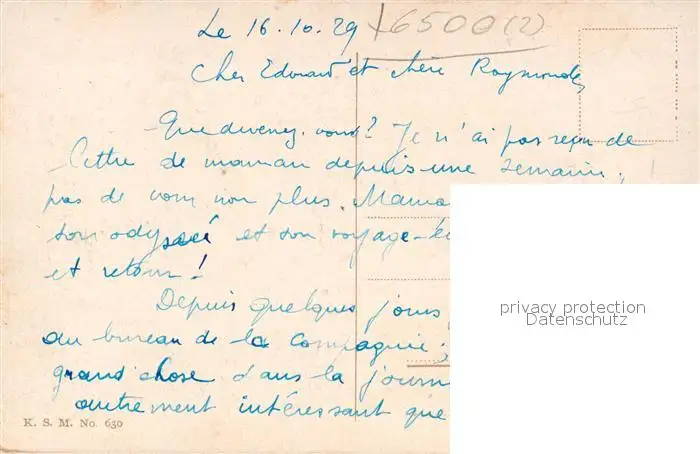 Le 16.10.29 6500 (2)
Cher Edouard et chère Raymonde,
Que devenez-vous? Je n'ai pas reçu de
lettre de maman depuis une semaine,
pas de vous non plus. Mama
son odyssée et son voyage-
et retour!
Depuis quelques jours
au bureau de la Compagnie.
grand chose dans la journ
autrement intéressant que
K. S. M. No. 630
privacy protection
Datenschutz